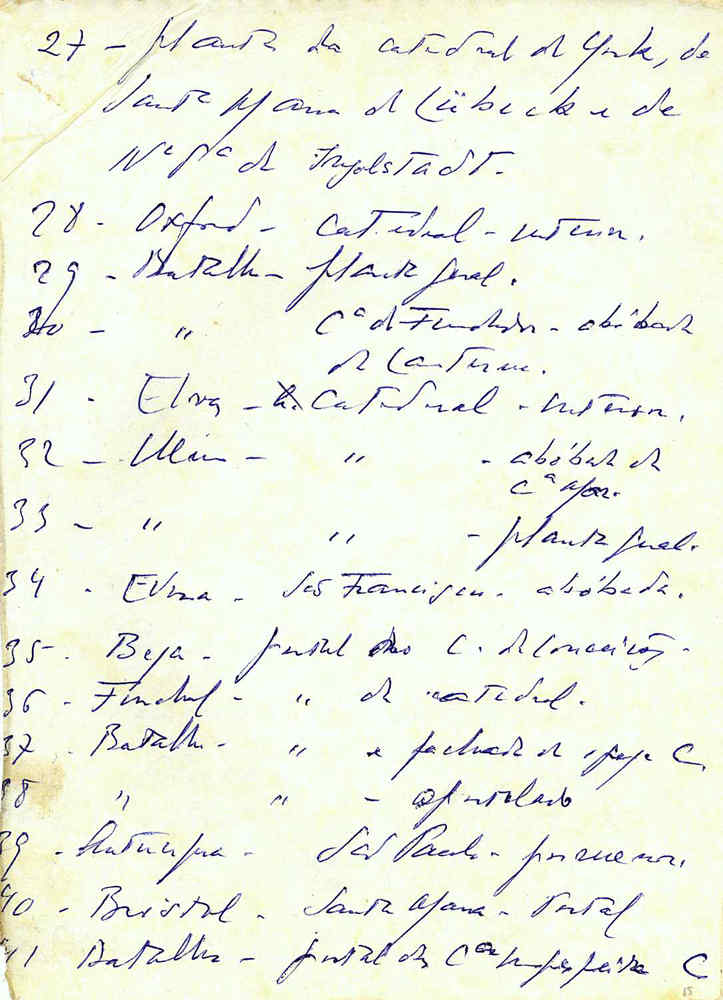 27 - planta da catedral de York, de
Santa Maria de Lübeck e de
Nª Sª de Ingolstadt -
28 - Oxford - catedral - interior.
29 - Batalha - planta geral.
30 - " Cª do Fundador - abóbada
de lanterna.
31 - Elvas - catedral - interior.
32 - Ulm - " - abóbada da
Cª Mor.
33 - " " - planta geral.
34 - Évora - São Francisco - abóbada.
35 - Beja - portal do C. da Conceição -
36 - Funchal - " da catedral.
37 - Batalha - " e fachada da igreja C.
38 " " - apostolado
39 - Antuérpia - São Paulo - pormenor.
40 - Bristol - Santa Maria - Portal
41 Batalha - portal das Cªs Imperfeitas C
15